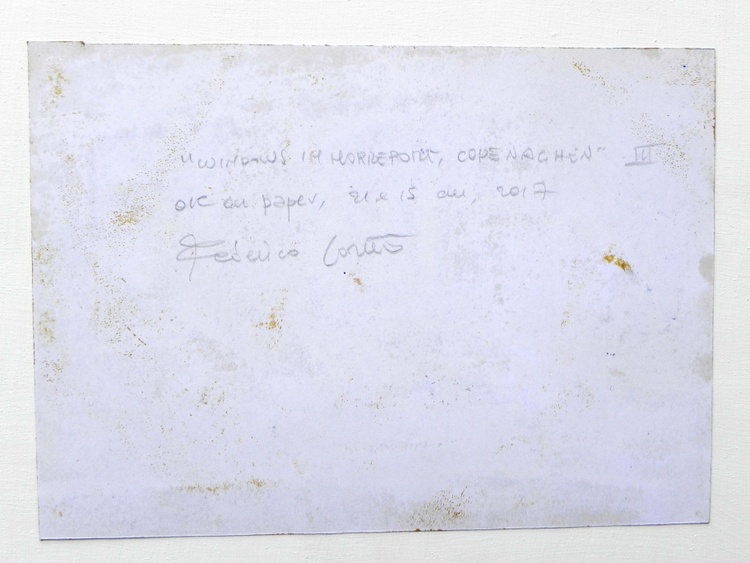 "WINDOWS IN NORREPORT, COPENAGHEN" III
on paper, 21 x 15 cm, 2017
Federico